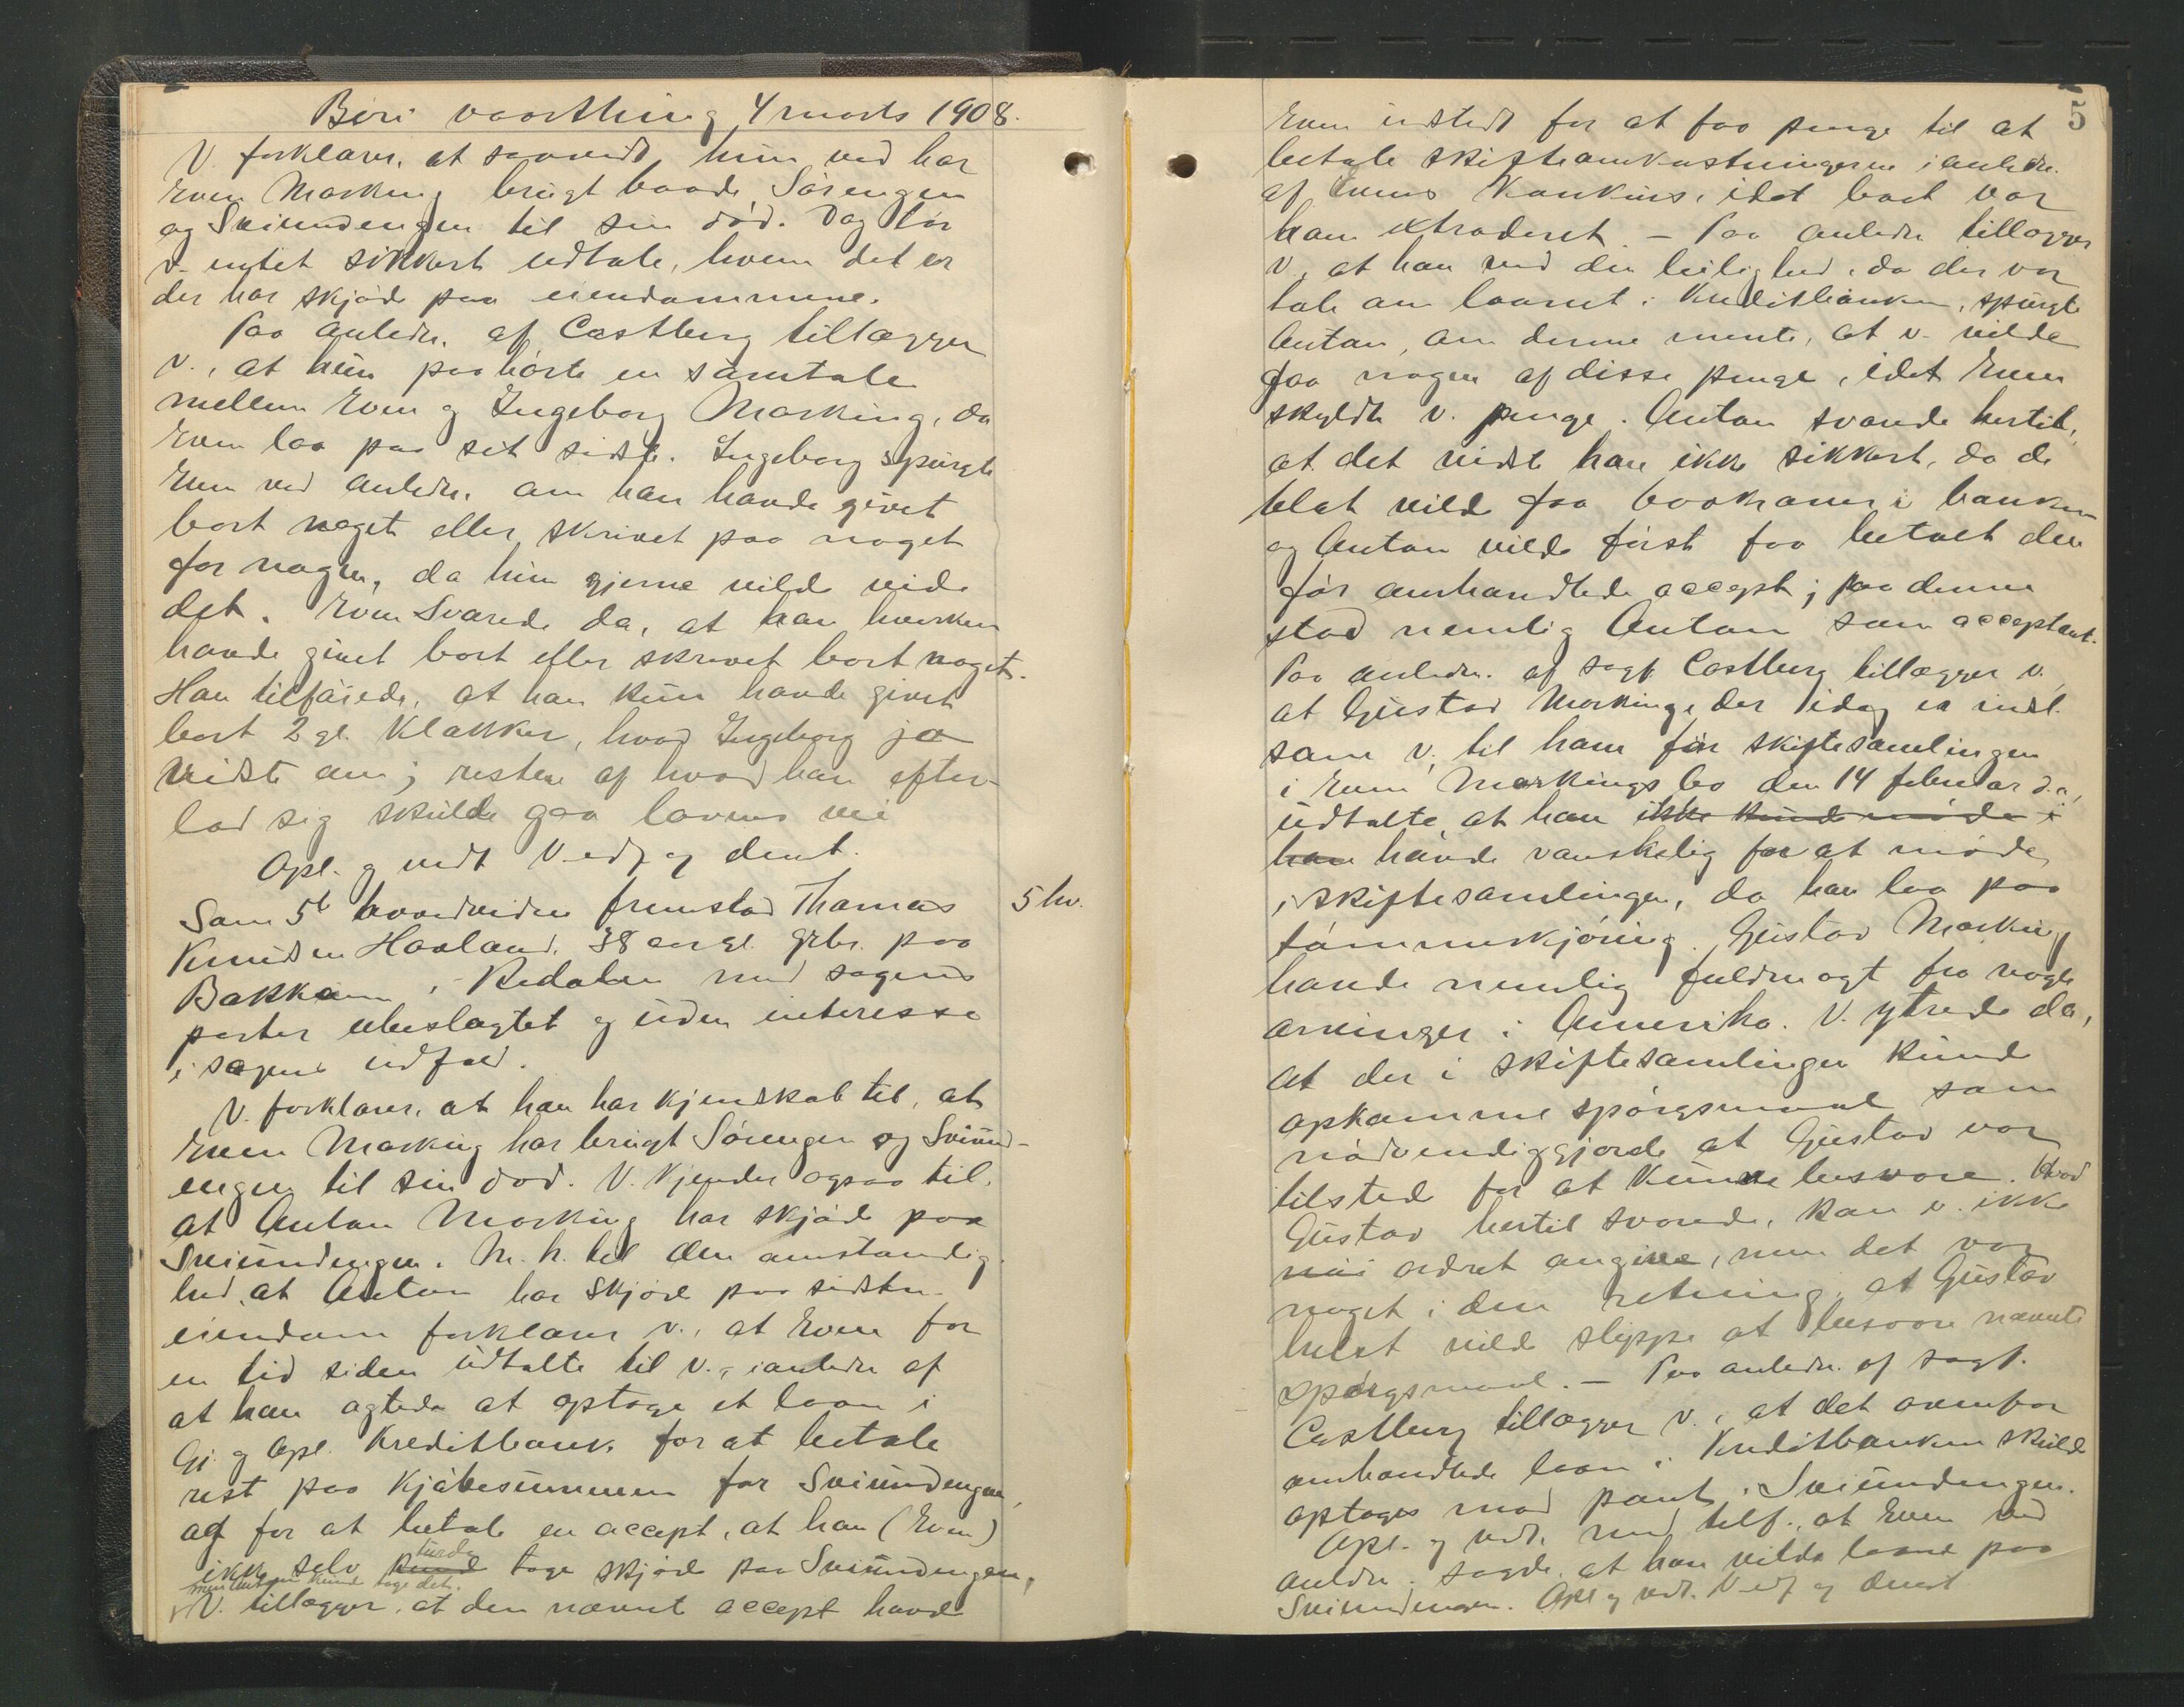 Biri vaarthing 4 marts 1908.
V. forklarer, at saavidt hun ved har
Even Marking brugt baade Sørengen
og Sveiundengen til sin død. Dog tør
v. intet sikkert udtale, hvem det er
der har skjøde paa eiendommene.
Paa anledn. af Castberg tillægger
v., at hun paahørte en samtale
mellem Even og Ingeborg Marking, da
Even laa paa sit sidste. Ingeborg spurgte
Even ved anledn. om han havde givet
bort noget eller skrivet paa noget
for nogen, da hun gjerne vilde vide
det. Even svarede da, at han hverken
havde givet bort eller skrevet bort noget.
Han tilføiede, at han kun havde givet
bort 2 gl. klokker, hvad Ingeborg jo
vidste om; resten af hvad han efter-
lod sig skulde gaa lovens vei
Opl. og vedt. V. edf. og demt.
Som 5te hovedvidne fremstod Thomas
5 hv.
Knudsen Haaland, 38 aar gl. gbr. paa
Bakken, Redalen med sagens
parter ubeslægtet og uden interesse
i sagens udfald.
V. forklarer, at han har kjendskab til, at
Even Marking har brugt Sørengen og Sveiund-
engen til sin død. V. kjender ogsaa til,
at Anton Marking har skjøde paa
Sveiundengen. M. h. til den omstændig-
hed, at Anton har skjøde paa sidstn.
eiendom forklarer v., at Even for
en tid siden udtalte til v., i anledn. af
at han agtede at optage et laan i
Gj. og Opl. Kreditbank for at betale
rest paa kjøbesummen for Sveiundengen,
og for at betale en accept, at han (Even)
turde
ikke selv kunde tage skjøde paa Sveiundengen,
men Anton kunde tage det.
V. tillægger, at den nævnte accept havde
5
Even udstedt for at faa penge til at
betale skifteomkostningerne i anledn.
af Evens konkurs, idet boet var
ham extraderet. – Paa anledn. tillægger
v., at han ved den leilighed, da der var
tale om laanet i Kreditbanken, spurgte
Anton, om denne mente, at v. vilde
faa nogen af disse penge, idet Even
skyldte v. penge. Anton svarede hertil,
at det vidste han ikke sikkert, da de
blot vilde faa i banken
og Anton vilde først faa betalt den
før omhandlede accept; paa denne
stod nemlig Anton som acceptant.
Paa anledn. af sagf. Castberg tillægger v.,
at Gustav Marking, der idag er indst.
som v., til ham før skiftesamlingen
i Even Markings bo den 14 februar d.a.
udtalte, at han ikke kunde møde i
han havde vanskelig for at møde
i skiftesamlingen, da han laa paa
tømmerkjøring. Gustav Marking
havde nemlig fuldmagt fra nogle
arvinger i Amerika. V. ytrede da,
at der i skiftesamlingen kunde
opkomme spørgsmaal som
nødvendiggjorde at Gustav var
tilstede for at kunne besvare. Hvad
Gustav hertil svarede, kan v. ikke
nøi ordret angive, men det var
noget i den retning, at Gustav
helst vilde slippe at besvare nævnte
spørgsmaal. – Paa anledn. af sagf.
Castberg tillægger v., at det ovenfor
omhandlede laan i Kreditbanken skulde
optages mod pant i Sveiundengen.
Opl. og vedt. med tilf., at Even ved
anledn. sagde, at han vilde laane paa
Sveiundengen. Opl. og vedt. V. edf. og demt